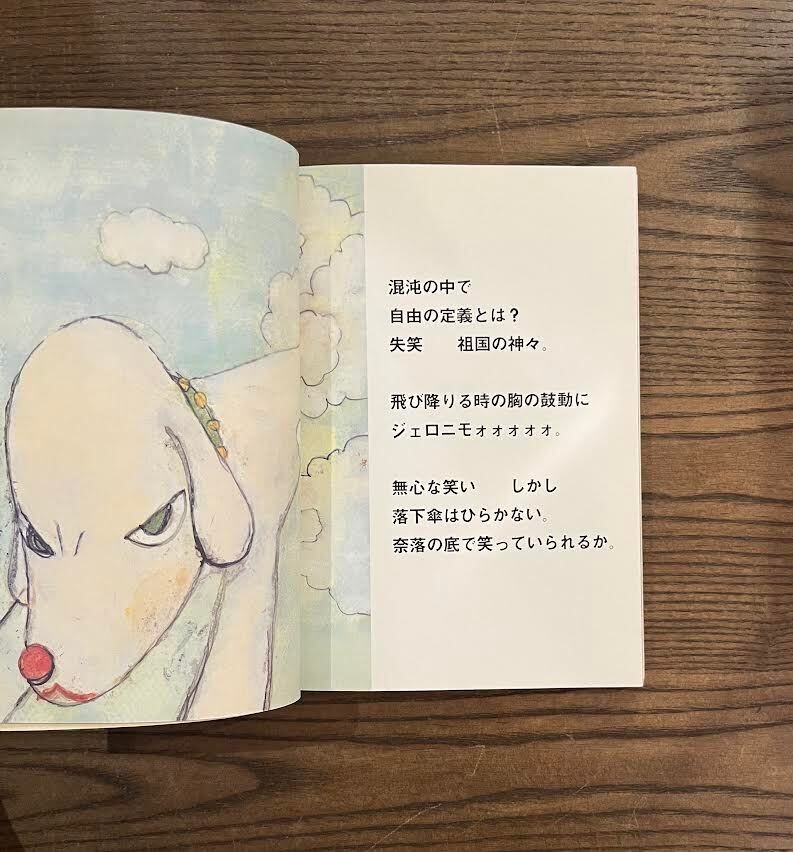 混沌の中で
自由の定義とは？
失笑　　祖国の神々。
飛び降りる時の胸の鼓動に
ジェロニモォォォォォ。
無心な笑い　　しかし
落下傘はひらかない。
奈落の底で笑っていられるか。